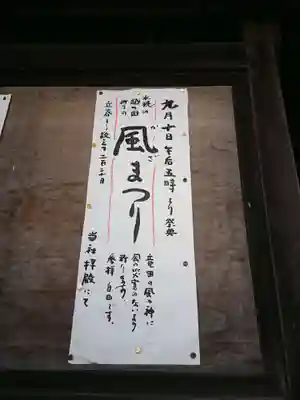 九月十日午后五時より祭典
竜田の風の神に
風の災害のないよう
祈ります
参拝自由です。
風まつり
かざ
水穂の
祈りの
立春より数えて二百二十日
当社拝殿にて